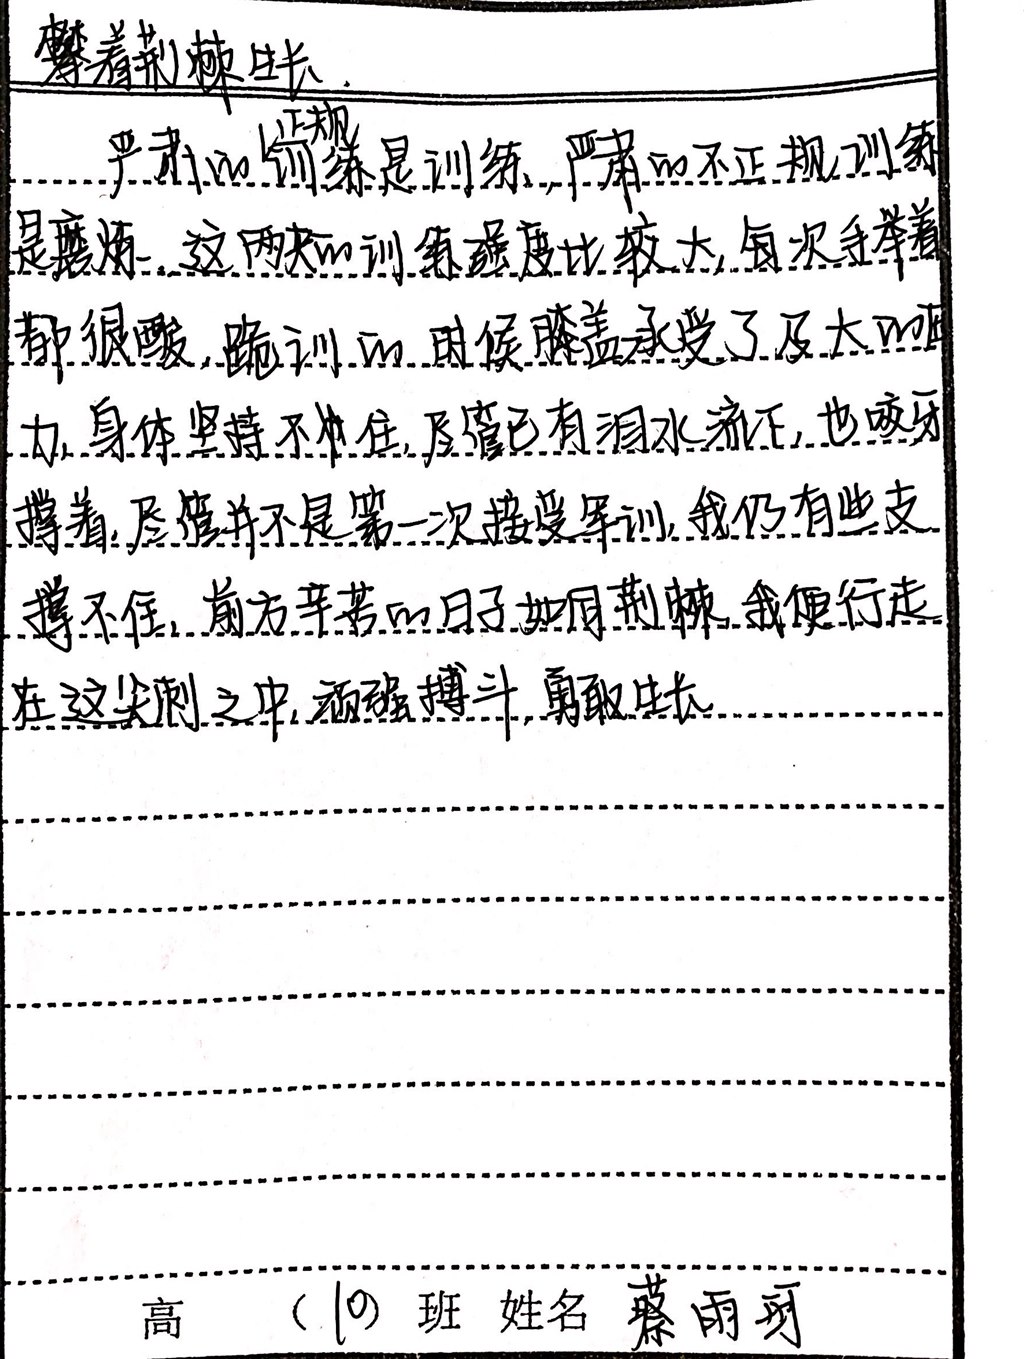 攀着荆棘生长.
严肃的正规训练是训练,严肃的不正规训练
是磨炼.这两天的训练强度比较大,每次手举着
都很酸,跪训的时候膝盖承受了及大的压
力,身体坚持不住,尽管已有泪水流下,也咬牙
撑着,尽管并不是第一次接受军训,我仍有些支
撑不住,前方辛苦的日子如同荆棘,我便行走
在这尖刺之中,顽强搏斗,勇敢生长
高 (10)班 姓名 蔡雨